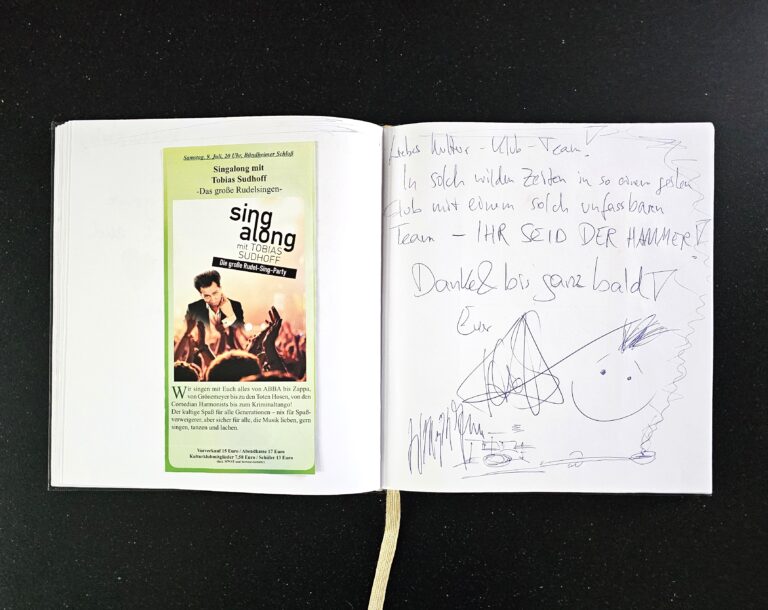 Samstag, 8. Juli, 20 Uhr, Bündheimer Schloß
Singalong mit
Tobias Sudhoff
-Das große Rudelsingen-
sing
along
mit TOBIAS
SUDHOFF
Die große Rudel-Sing-Party
Wir singen mit Euch alles von ABBA bis Zappa,
von Grönemeyer bis zu den Toten Hosen, von den
Comedian Harmonists bis zum Kriminaltango!
Der kultige Spaß für alle Generationen - nix für Spaß-
verweigerer, aber sicher für alle, die Musik lieben, gern
singen, tanzen und lachen.
Vorverkauf 15 Euro / Abendkasse 17 Euro
Kulturklubmitglieder 7,50 Euro / Schüler 13 Euro
Liebes Kultur-Klub-Team!
In solch wilden Zeiten in so einem
Club mit einem solch unfassbaren
Team - IHR SEID DER HAMMER!
Danke & bis ganz bald!
Euer